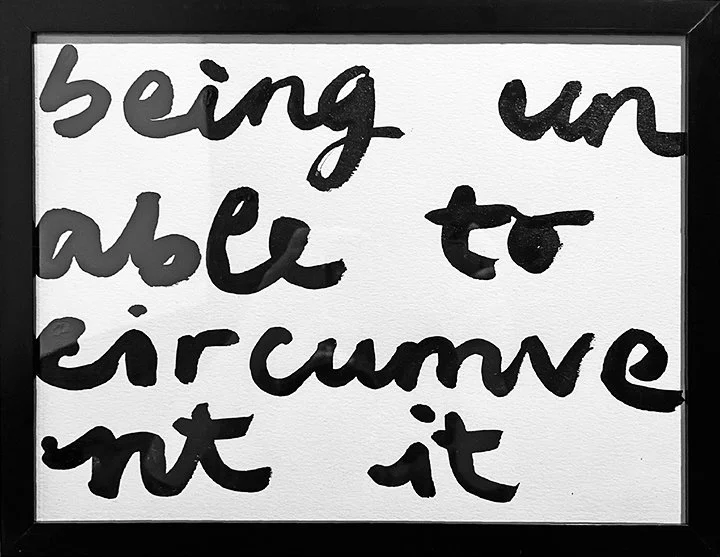 being un
able to
circumve
nt it